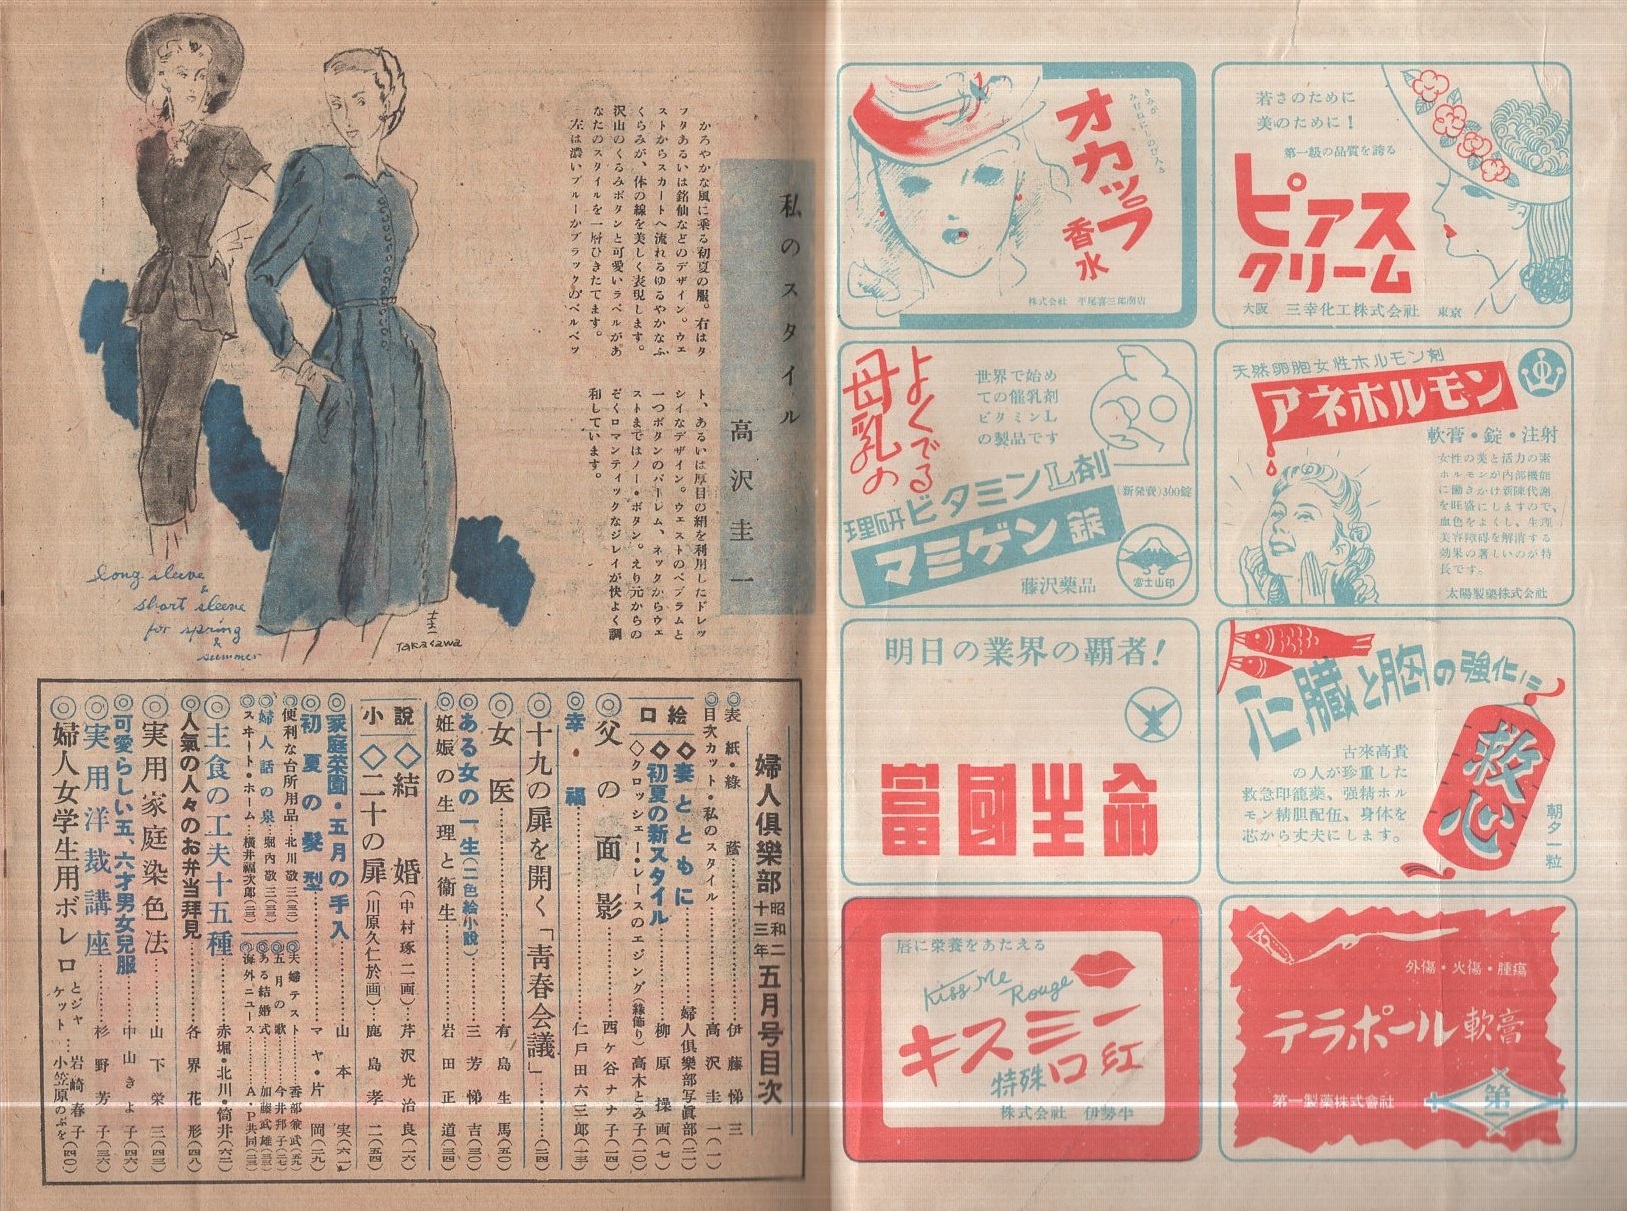 若さのために
美のために!
第一級の品質を誇る
ピアス
クリーム
大阪 三幸化工株式会社 東京
オカッパ
香水
株式会社 平尾喜三郎商店
天然卵胞女性ホルモン剤
アネホルモン
軟膏・錠・注射
女性の美と活力の素
ホルモンが内部機能
に働きかけ新陳代謝
を旺盛にしますので、
血色をよくし、生理
美容障碍を解消する
効果の著しいのが特
長です。
太陽製薬株式会社
よくでる
母乳の
世界で始め
ての催乳剤
ビタミンL
の製品です
理研ビタミンL剤
(新発売)300錠
マミゲン錠
富士山印
藤沢薬品
心臓と胸の強化に
救心
古來高貴
の人が珍重した
救急印籠薬、强精ホル
モン精胆配伍、身体を
芯から丈夫にします。
朝夕一粒
明日の業界の覇者!
富國生命
外傷・火傷・腫瘍
テラポール軟膏
第一製薬株式會社
第一
唇に栄養をあたえる
Kiss Me
Rouge
キスミー
特殊口紅
株式会社 伊勢半
私のスタイル
高沢圭一
かろやかな風に乗る初夏の服。右はタ
フタあるいは銘仙などのデザイン。ウエ
ストからスカートへ流れるゆるやかなふ
くらみが、体の線を美しく表現します。
沢山のくるみボタンと可愛いラペルがあ
なたのスタイルを一層ひきたてます。
左は濃いブルーかブラックのベルベッ
ト、あるいは厚目の絹を利用したドレッ
シイなデザイン。ウェストのペプラムと
一つボタンのバーレム、ネックからウェ
ストまではノー・ボタン。えり元からの
ぞくロマンティックなジレイが快よく調
和しています。
long sleeve
&
short sleeve
for spring
&
summer
圭一
TAKASAWA
婦人倶樂部 昭和二十三年 五月号目次
表紙・綠蔭……伊藤悌三
目次カット・私のスタイル……高沢圭一(一)
口絵
◇妻とともに……婦人倶樂部写眞部(二一)
◇初夏の新スタイル……柳原操画(七)
◇クロッシェー・レースのエジング(緣飾り)高木とみ子(一〇)
◎父の面影……西ケ谷ナナ子(一四)
◎幸・福……仁戸田六三郎(一三)
◎十九の扉を開く「青春会議」……(二四)
◎女医……有島生馬(五〇)
◎ある女の一生(二色絵小說)……三芳悌吉(三〇)
◎妊娠の生理と衞生……岩田正道(四四)
小說
◇結婚(中村琢二画)…芹沢光治良(一六)
◇二十の扉(川原久仁於画)…鹿島孝二(五四)
◎家庭菜園・五月の手入……山本実(六一)
◎初夏の髮型……マヤ・片岡(二九)
◎便利な台所用品…北川敬三(三三)
◎婦人話の泉…堀内敬三(三三)
◎スヰート・ホーム…橫井福次郎(三三)
◎夫婦テスト……香部兼武(五九)
◎五月の歌……今井邦子(二七)
◎ある結婚式……加藤武雄(三三)
◎海外ニュース……A・P共同(三三)
◎主食の工夫十五種……赤堀・北川・筒井(六二)
◎人氣の人々のお弁当拝見……各界花形(四八)
◎実用家庭染色法……山下栄三(四三)
◎可愛らしい五、六才男女兒服……中山きよ子(四六)
◎実用洋裁講座……杉野芳子(三六)
◎婦人女学生用ボレロとジャケット…岩崎春子 小笠原のぶを(四〇)